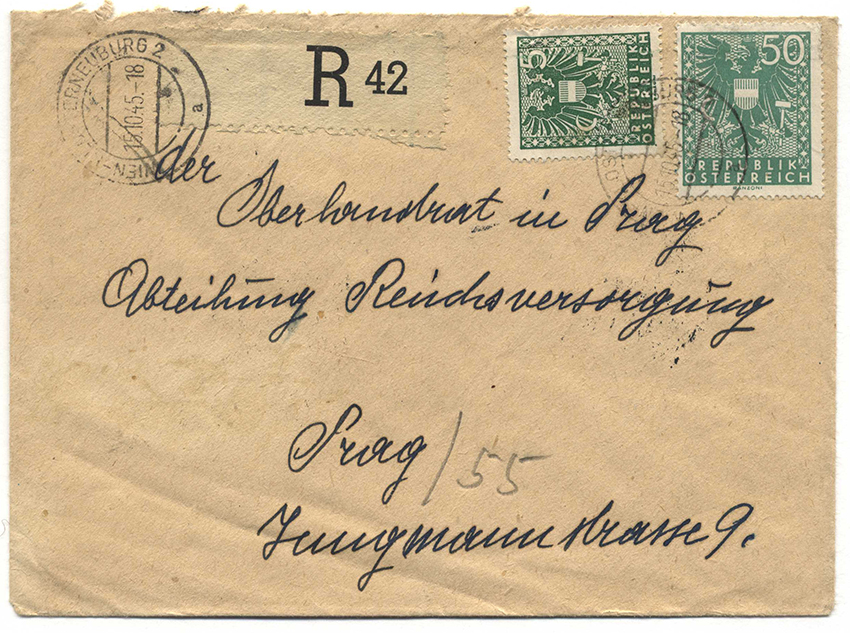 ORNEUBURG 2
15.10.45.-18
a
WIEN
R 42
5
REPUBLIK
ÖSTERREICH
50
REPUBLIK
ÖSTERREICH
15.10.45.-18
der
Oberlandrat in Prag
Abteilung Reichsversorgung
Prag/55
Jungmannstrasse 9.